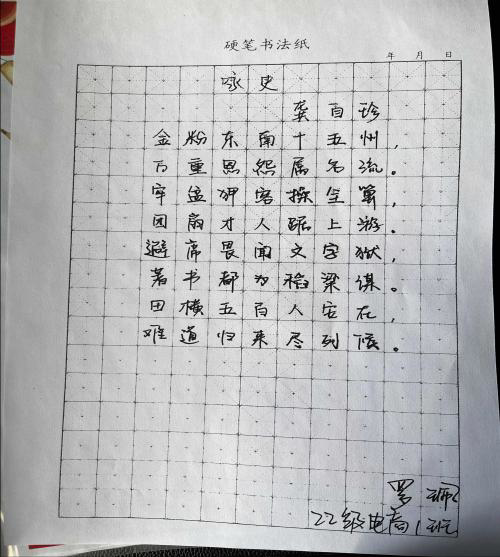 硬笔书法纸
年 月 日
咏史
龚自珍
金粉东南十五州，
万重恩怨属名流。
牢盆狎客操全算，
团扇才人踞上游。
避席畏闻文字狱，
著书都为稻粱谋。
田横五百人安在，
难道归来尽列侯。
罗
22级电商1班